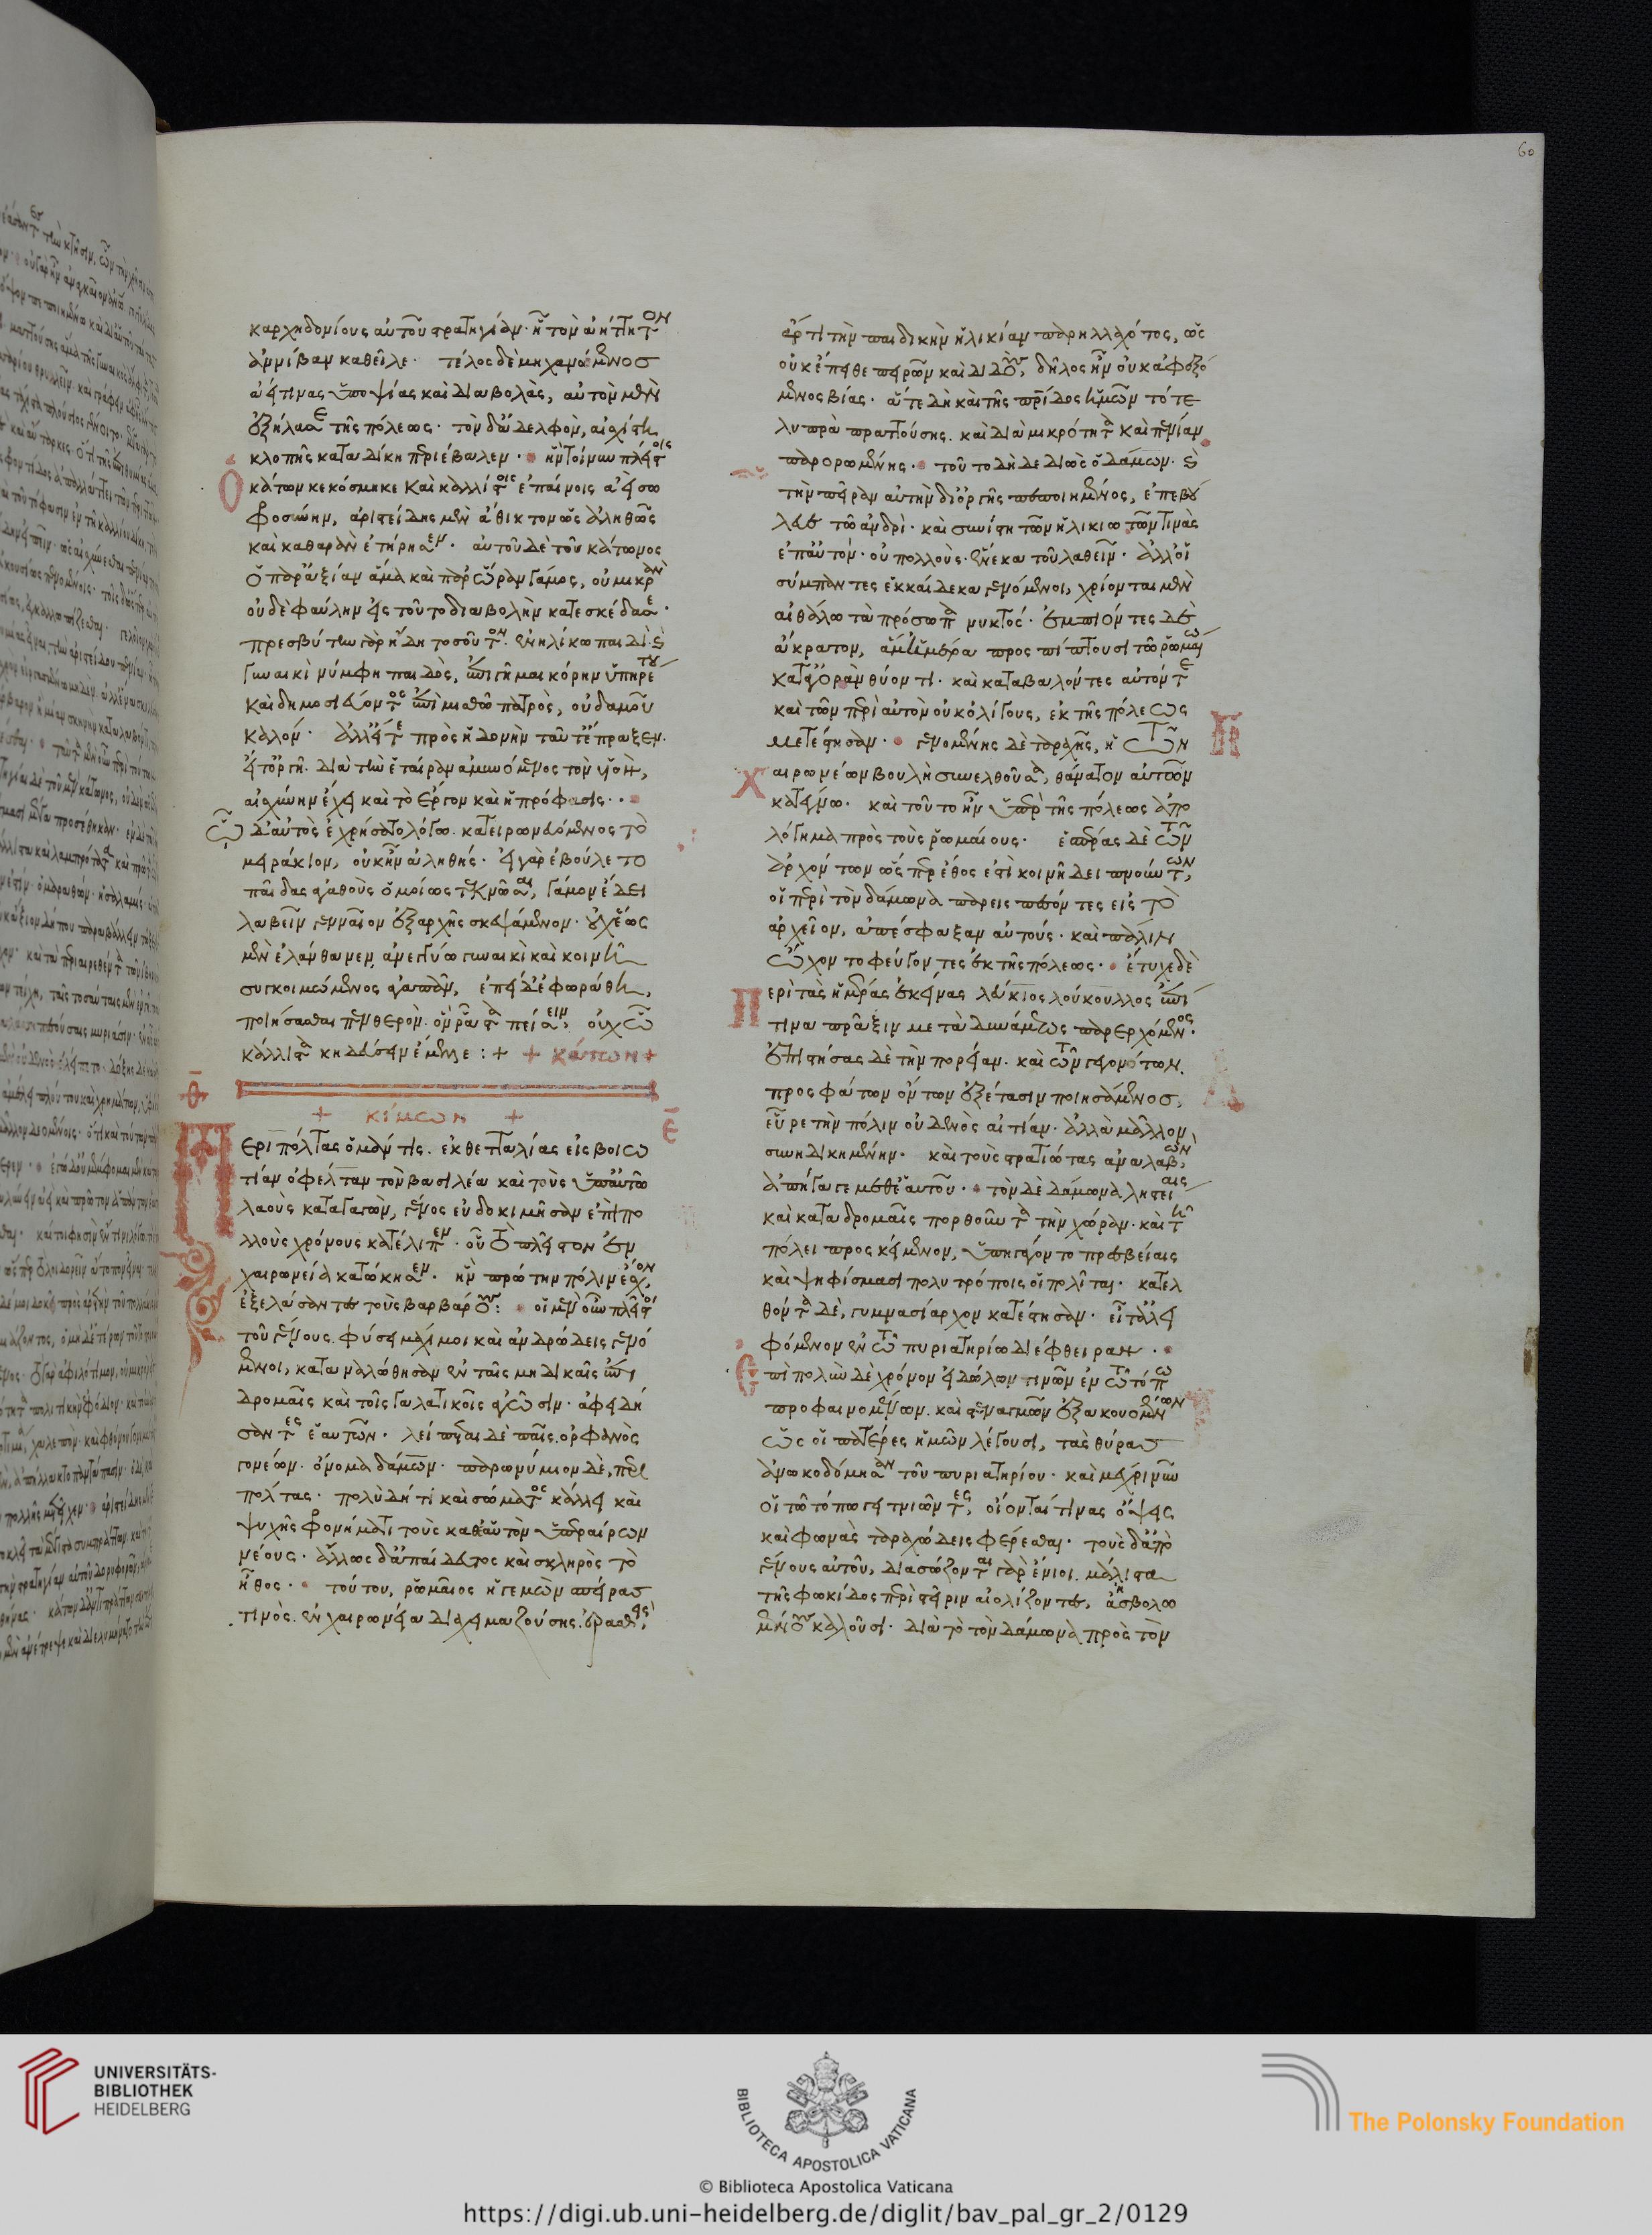 60
καρχηδονίους αὐτοῦ στρατηγίαν· ἢ τὸν ἀήττητον
ἀννίβαν καθεῖλε· τέλος δὲ μηχανώμενος
ἀεί τινας ὑποψίας καὶ διαβολὰς, αὐτὸν μὲν
ἐξήλασε τῆς πόλεως· τὸν δ' ἀδελφὸν, αἰσχίστη
κλοπῆς καταδίκη περιέβαλεν· ἣν τοίνυν πλείστοις
κάτων κεκόσμηκε καὶ καλλίστοις ἐπαίνοις ἀεὶ σω
φροσύνην, ἀριστείδης μὲν ἄθικτον ὡς ἀληθῶς
καὶ καθαρὰν ἐτήρησεν· αὐτοῦ δὲ τοῦ κάτωνος
ὁ παρ' ἀξίαν ἅμα καὶ παρ' ὥραν γάμος, οὐ μικρὰν
οὐδὲ φαύλην εἰς τοῦτο διαβολὴν κατεσκέδασε·
πρεσβύτην γὰρ ἤδη τοσοῦτον ἐνηλίκω παιδὶ καὶ
γυναικὶ νύμφη παιδὸς, ἐπιγῆμαι κόρην ὑπηρετου
καὶ δημοσιεύοντος ἐπὶ μισθῶ πατρὸς, οὐδαμοῦ
καλόν· ἀλλ' εἴτε πρὸς ἡδονὴν ταῦτ' ἔπραξεν·
εἴτ' ὀργῆ διὰ τὴν ἑταίραν ἀμυνόμενος τὸν υἱὸν,
αἰσχύνην ἔχει καὶ τὸ ἔργον καὶ ἡ πρόφασις·
ὧ δ' αὐτὸς ἐχρήσατο λόγω κατειρωνευόμενος τὸ
μειράκιον, οὐκ ἦν ἀληθής· εἰ γὰρ ἐβούλετο
παῖδας ἀγαθοὺς ὁμοίως τεκνῶσαι, γάμον ἔδει
λαβεῖν γενναῖον ἐξ ἀρχῆς σκεψάμενον· οὐχ ἕως
μὲν ἐλάνθανεν, ἀνεγγύω γυναικὶ καὶ κοινῆ
συγκοιμώμενος ἀγαπᾶν, ἐπεὶ δ' ἐφωράθη,
ποιήσασθαι πενθερόν· ὃν ῥᾶστα πείσειν, οὐχ ὧ
κάλλιστα κηδεύσειν ἔμελλε :+ + κάτων +
+ κίμων +
Περιπόλτας ὁ μάντις. ἐκ θετταλίας εἰς βοιω
τίαν ὀφέλταν τὸν βασιλέα καὶ τοὺς ὑπ' αὐτῶ
λαοὺς καταγαγὼν, γένος εὐδοκιμῆσαν ἐπὶ πο
λλοὺς χρόνους κατέλιπεν· οὗ τὸ πλεῖστον ἐν
χαιρωνεία κατώκησεν· ἣν πρώτην πόλιν ἔσχον,
ἐξελάσαντες τοὺς βαρβάρους: οἱ μὲν οὖν πλεῖστοι
τοῦ γένους. φύσει μάχιμοι καὶ ἀνδρώδεις γενό
μενοι, καταναλώθησαν ἐν ταῖς μηδικαῖς ἐπι
δρομαῖς καὶ τοῖς γαλατικοῖς ἀγῶσιν· ἀφειδή
σαντες ἑαυτῶν· λείπεται δὲ παῖς. ὀρφανὸς
γονέων. ὄνομα δάμων. παρωνύμιον δὲ, περι
πόλτας· πολὺ δή τι καὶ σώματος κάλλει καὶ
ψυχῆς φρονήματι τοὺς καθ' αὑτὸν ὑπεραίρων
νέους· ἄλλως δ' ἀπαίδευτος καὶ σκληρὸς τὸ
ἦθος· τούτου, ῥωμαῖος ἡγεμὼν σπείρας
τινὸς. ἐν χαιρωνεία διαχειμαζούσης. ἐρασθεὶς
ἄρτι τὴν παιδικὴν ἡλικίαν παρηλλαχότος, ὡς
οὐκ ἔπειθε πειρῶν καὶ διδοὺς, δῆλος ἦν οὐκ ἀφεξό
μενος βίας· ἅτε δὴ καὶ τῆς πατρίδος ἡμῶν τότε
λυπρὰ πραττούσης. καὶ διὰ μικρότητα καὶ πενίαν
παρορωμένης· τοῦτο δὴ δεδιὼς ὁ δάμων. καὶ
τὴν πεῖραν αὐτὴν δι' ὀργῆς πεποιημένος, ἐπεβού
λευε τῶ ἀνδρὶ· καὶ συνίστη τῶν ἡλικιωτῶν τινὰς
ἐπ' αὐτόν· οὐ πολλοὺς. ἕνεκα τοῦ λαθεῖν· ἀλλ' οἱ
σύμπαντες ἑκκαίδεκα γενόμενοι, χρίονται μὲν
αἰθάλω τὰ πρόσωπα νυκτός· ἐμπιόντες δὲ
ἄκρατον, ἅμ' ἡμέρα προσπίπτουσι τῶ ῥωμαίω
κατ' ἀγορὰν θύοντι. καὶ καταβαλόντες αὐτόν τε
καὶ τῶν περὶ αὐτὸν οὐκ ὀλίγους, ἐκ τῆς πόλεως
μετέστησαν· γενομένης δὲ ταραχῆς, ἡ τῶν
χαιρωνέων βουλὴ συνελθοῦσα, θάνατον αὐτῶν
κατέγνω. καὶ τοῦτο ἦν ὑπὲρ τῆς πόλεως ἀπο
λόγημα πρὸς τοὺς ῥωμαίους· ἑσπέρας δὲ τῶν
ἀρχόντων ὥσπερ ἔθος ἐστὶ κοινῆ δειπνούντων,
οἱ περὶ τὸν δάμωνα παρεισπεσόντες εἰς τὸ
ἀρχεῖον, ἀπέσφαξαν αὐτούς· καὶ πάλιν
ὤχοντο φεύγοντες ἐκ τῆς πόλεως· ἔτυχε δὲ
περὶ τὰς ἡμέρας ἐκείνας λεύκιος λούκουλλος ἐπί
τινα πρᾶξιν μετὰ δυνάμεως παρερχόμενος·
ἐπιστήσας δὲ τὴν πορείαν. καὶ τῶν γεγονότων.
προσφάτων ὄντων ἐξέτασιν ποιησάμενος,
εὗρε τὴν πόλιν οὐδενὸς αἰτίαν· ἀλλὰ μᾶλλον
συνηδικημένην· καὶ τοὺς στρατιώτας ἀναλαβὼν,
ἀπήγαγε μεθ' ἑαυτοῦ· τὸν δὲ δάμωνα ληστείαις
καὶ καταδρομαῖς πορθοῦντα τὴν χώραν. καὶ τῆ
πόλει προσκείμενον, ὑπηγάγοντο πρεσβείαις
καὶ ψηφίσμασι πολυτρόποις οἱ πολῖται· κατελ
θόντα δὲ, γυμνασίαρχον κατέστησαν· εἶτ' ἀλει
φόμενον ἐν τῶ πυριατηρίω διέφθειραν·
ἐπὶ πολὺν δὲ χρόνον εἰδώλων τινῶν ἐν τῶ τόπω
προφαινομένων. καὶ στεναγμῶν ἐξακουομένων
ὡς οἱ πατέρες ἡμῶν λέγουσι, τὰς θύρας
ἀνωκοδόμησαν τοῦ πυριατηρίου· καὶ μέχρι νῦν
οἱ τῶ τόπω γειτνιῶντες, οἴονταί τινας ὄψεις
καὶ φωνὰς ταραχώδεις φέρεσθαι· τοὺς δ' ἀπὸ
γένους αὐτοῦ, διασώζονται γὰρ ἔνιοι μάλιστα
τῆς φωκίδος περὶ στεῖριν αἰολίζοντες, ἀσβολω
μένους καλοῦσι· διὰ τὸ τὸν δάμωνα πρὸς τὸν
UNIVERSITÄTS-
BIBLIOTHEK
HEIDELBERG
BIBLIOTECA APOSTOLICA VATICANA
The Polonsky Foundation
© Biblioteca Apostolica Vaticana
https://digi.ub.uni-heidelberg.de/diglit/bav_pal_gr_2/0129